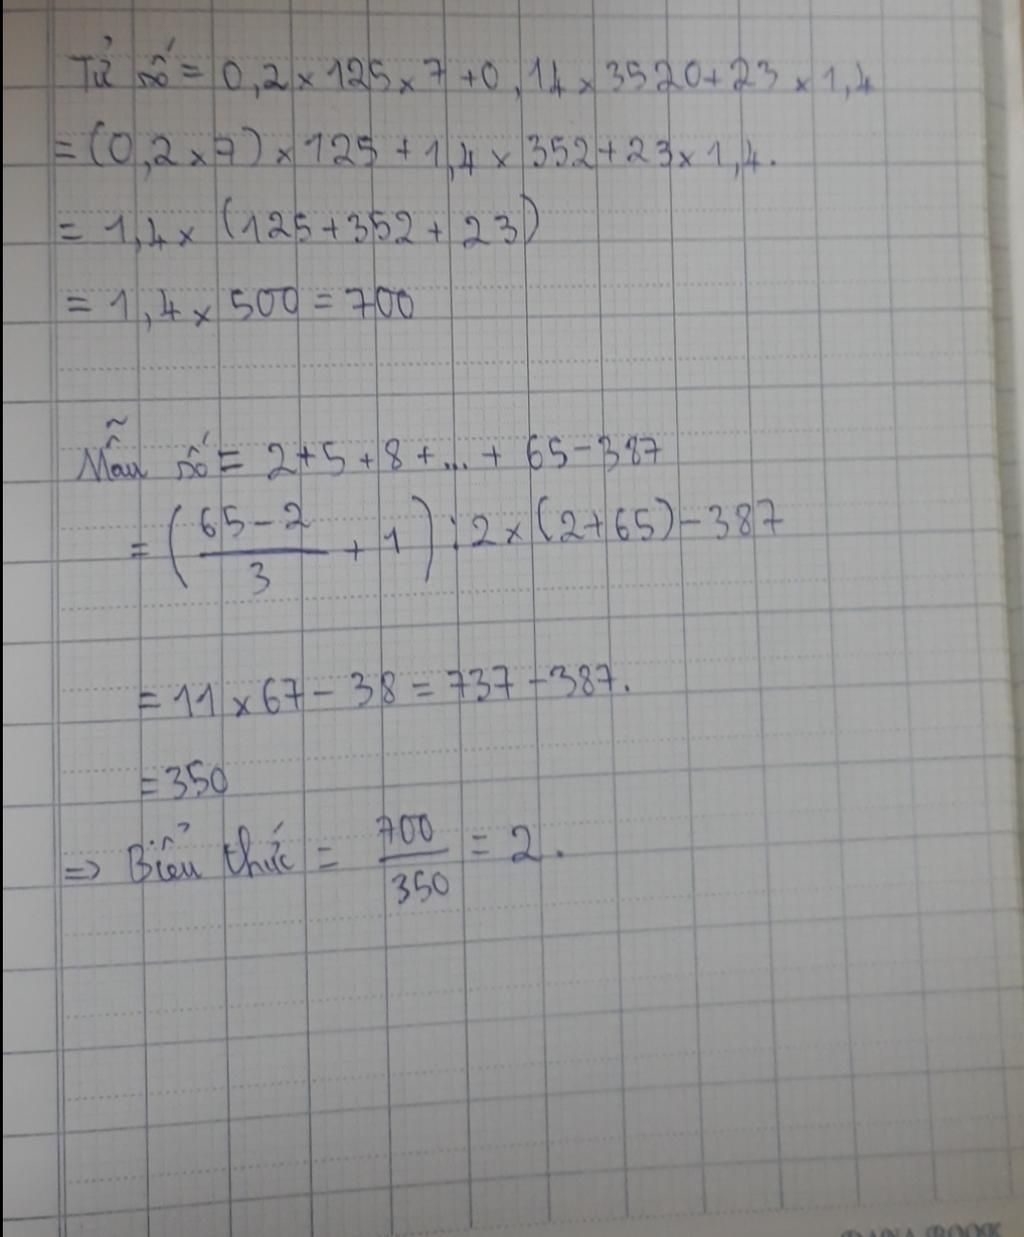 Tử số = 0,2 × 125 × 7 + 0,14 × 3520 + 23 × 1,4
= (0,2 × 7) × 125 + 1,4 × 352 + 23 × 1,4.
= 1,4 × (125 + 352 + 23)
= 1,4 × 500 = 700
Mẫu số = 2 + 5 + 8 + ... + 65 - 387
= ( (65 - 2)/3 + 1 ) : 2 × (2 + 65) - 387
= 11 × 67 - 38 = 737 - 387.
= 350
=> Biểu thức = 700/350 = 2.